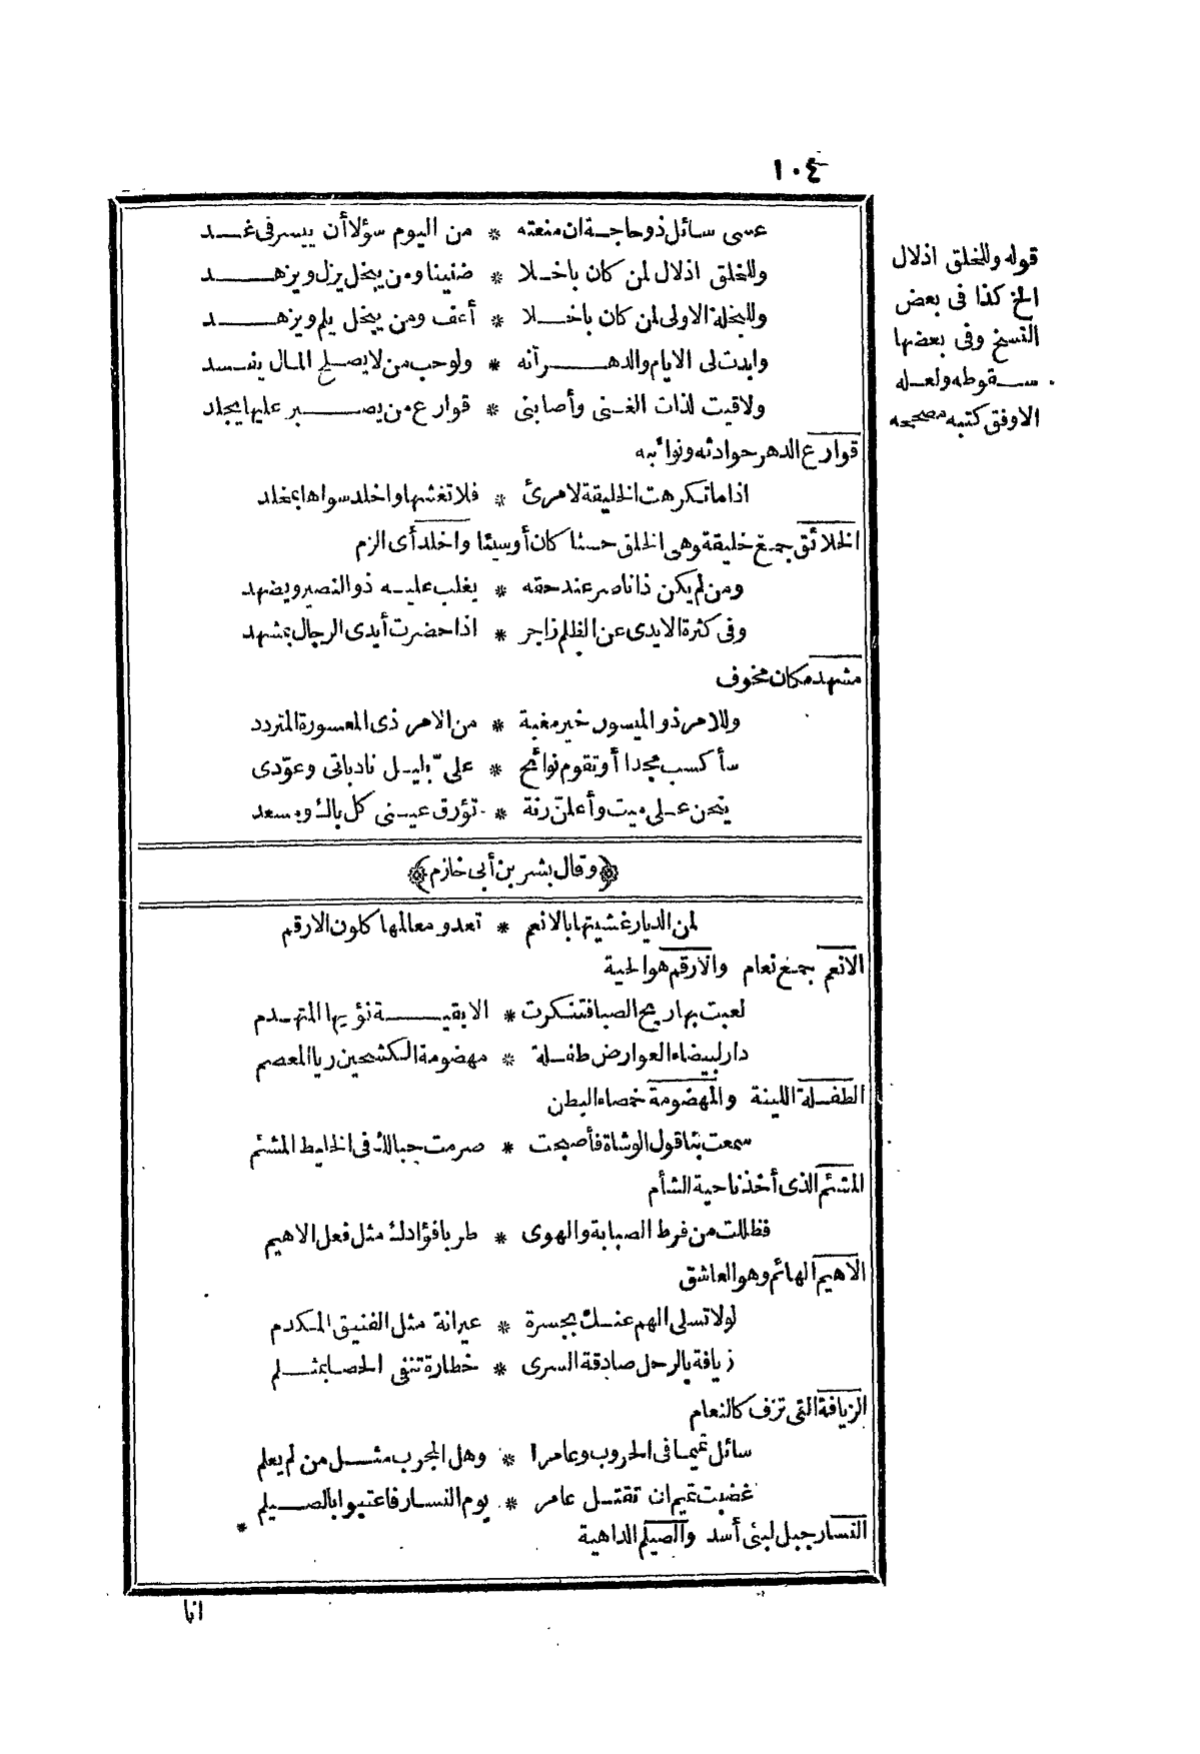 ١٠٤
عسى سائل ذو حاجة ان منعته * من اليوم سؤلا أن ييسر فى غد
وللخلق اذلال لمن كان باخلا * ضنينا ومن يبخل يزل ويزهد
وللبخلة الاولى لمن كان باخلا * أعف ومن يبخل يلم ويزهد
وابدت لى الايام والدهر آنه * ولو حب من لا يصلح المال يفسد
ولاقيت لذات الغنى وأصابنى * قوارع من يصبر عليها يجلد
قوارع الدهر حوادثه ونوائبه
اذا ما تكرهت الخليقة لامرئ * فلا تغشها واخلد سواها بمخلد
الخلائق جمع خليقة وهى الخلق حسنا كان أو سيئا واخلد أى الزم
ومن لم يكن ذا ناصر عند حقه * يغلب عليه ذو النصير ويضهد
وفى كثرة الايدى عن الظلم زاجر * اذا حضرت أيدى الرجال بمشهد
مشهد مكان مخوف
وللامر ذو الميسور خير مغبة * من الامر ذى المعسورة المتردد
سأكسب مجدا أو تقوم نوائح * علىّ بليل نادباتى وعوّدى
ينحن على ميت وأعلن رنة * تؤرق عينى كل باك ومسعد
﴿وقال بشر بن أبى خازم﴾
لمن الديار غشيتها بالانعم * تعدو معالمها كلون الارقم
الانعم جمع نعام والارقم هو الحية
لعبت بها ريح الصبا فتنكرت * الا بقية نؤيها المتهدم
دار لبيضاء العوارض طفلة * مهضومة الكشحين ريا المعصم
الطفلة اللينة والمهضومة خمصاء البطن
سمعت بنا قول الوشاة فأصبحت * صرمت حبالك فى الخليط المشئم
المشئم الذى أخذ ناحية الشأم
فظللت من فرط الصبابة والهوى * طربا فؤادك مثل فعل الاهيم
الاهيم الهائم وهو العاشق
لولا تسلى الهم عنك بجسرة * عيرانة مثل الفنيق المكدم
زيافة بالرحل صادقة السرى * خطارة تنفى الحصا بمثلم
الزيافة التى تزف كالنعام
سائل تميما فى الحروب وعامرا * وهل المجرب مثل من لم يعلم
غضبت تميم ان تقتل عامر * يوم النسار فاعتبوا بالصيلم
النسار جبل لبنى أسد والصيلم الداهية *
انا
قوله وللخلق اذلال
الخ كذا فى بعض
النسخ وفى بعضها
سقوطه ولعله
الاوفق كتبه مصححه